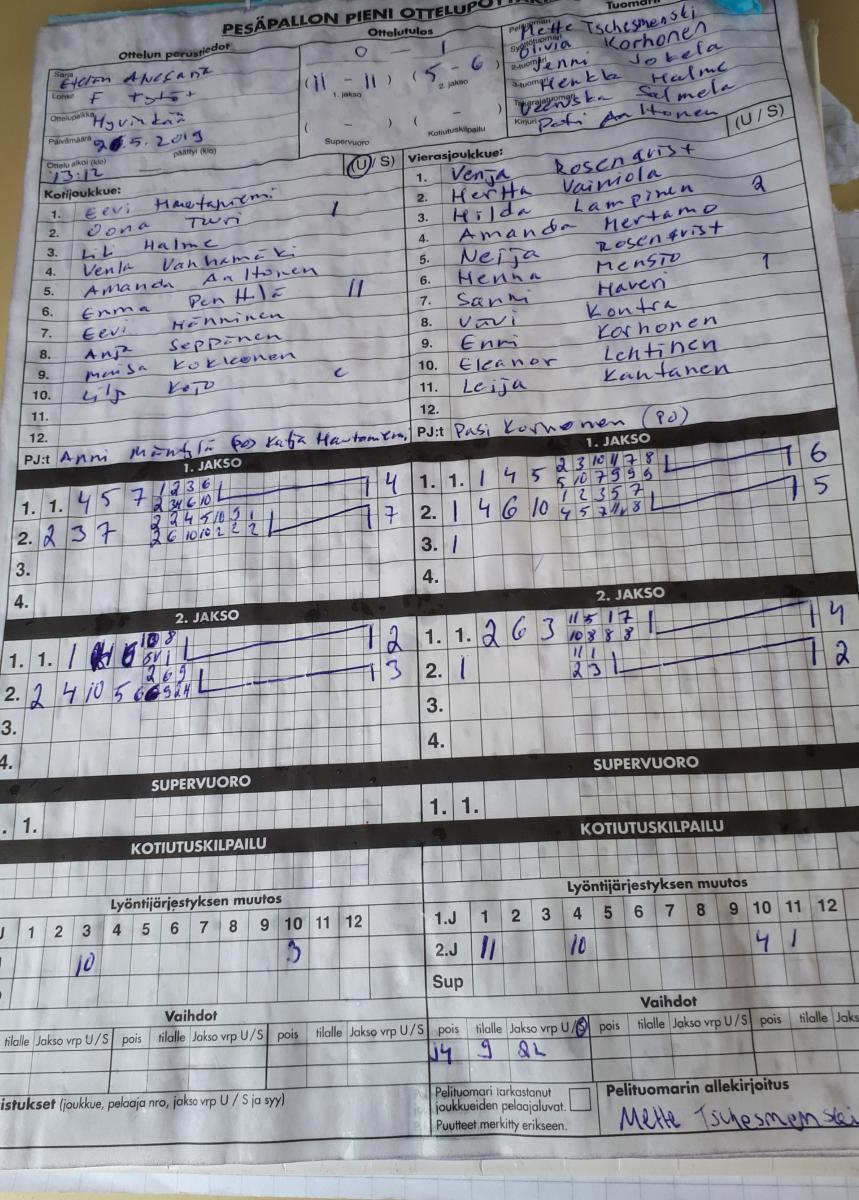 PESÄPALLON PIENI OTTELUPÖYTÄKIRJA
Ottelun perustiedot
Ottelutulos
Tuomarit
Sarja
Lohko F tytöt
Ottelupaikka Hyvinkää
Päivämäärä 26.5.2019
Ottelu alkoi (klo) päättyi (klo)
13:12 —
0 - 1
(11 - 11) (5 - 6)
1. jakso 2. jakso
( - ) ( - )
Supervuoro Kotiutuskilpailu
Pelituomari Mette Tschesmenski
Syöttötuomari Olivia Korhonen
2-tuomari Jenni Jokela
3-tuomari Henkka Halme
Takarajatuomari Salmela
Kirjuri Pasi Aaltonen
Kotijoukkue: (U / S)
1. Eevi Hautaniemi
2. Oona Turi 1
3. Lili Halme
4. Venla Vanhamäki
5. Amanda Aaltonen
6. Emma Penttilä 11
7. Eevi Hänninen
8. Anja Seppänen
9. Maisa Kokkonen
10. Lilja Kojo c
11.
12.
PJ:t Anni Mäntylä (PO) Katja Hautaniemi
Vierasjoukkue: (U / S)
1. Venja Rosenqvist
2. Hertta Vainiola
3. Hilda Lampinen 2
4. Amanda Mertamo
5. Neija Rosenqvist
6. Henna Mensio
7. Sanni Haveri 1
8. Vävi Kontra
9. Enni Korhonen
10. Eleanor Lehtinen
11. Leija Kantanen
12.
PJ:t Pasi Korhonen (PO)
1. JAKSO
1. 1. 4 5 7 1 2 3 6 4
2. 2 3 7 7
3.
4.
1. JAKSO
1. 1. 1 4 5 2 3 10 11 7 8 6
5 10 7 9 9 9
2. 1 4 6 10 1 2 3 5 7 5
3. 1
4.
2. JAKSO
1. 1. 1 2
2. 2 4 10 5 3
3.
4.
2. JAKSO
1. 1. 2 6 3 11 5 1 7 4
10 8 8 8
2. 1 11 1 2
2 3
3.
4.
SUPERVUORO
. 1.
SUPERVUORO
1. 1.
KOTIUTUSKILPAILU
KOTIUTUSKILPAILU
Lyöntijärjestyksen muutos
J 1 2 3 4 5 6 7 8 9 10 11 12
10 3
Lyöntijärjestyksen muutos
1.J 1 2 3 4 5 6 7 8 9 10 11 12
2.J 11 10 4 1
Sup
Vaihdot
tilalle Jakso vrp U / S pois tilalle Jakso vrp U / S pois tilalle Jakso vrp U / S
Vaihdot
pois tilalle Jakso vrp U/S pois tilalle Jakso vrp U / S pois tilalle Jaks
14 9 2L
istukset (joukkue, pelaaja nro, jakso vrp U / S ja syy)
Pelituomari tarkastanut
joukkueiden pelaajaluvat.
Puutteet merkitty erikseen.
Pelituomarin allekirjoitus
Mette Tschesmenski